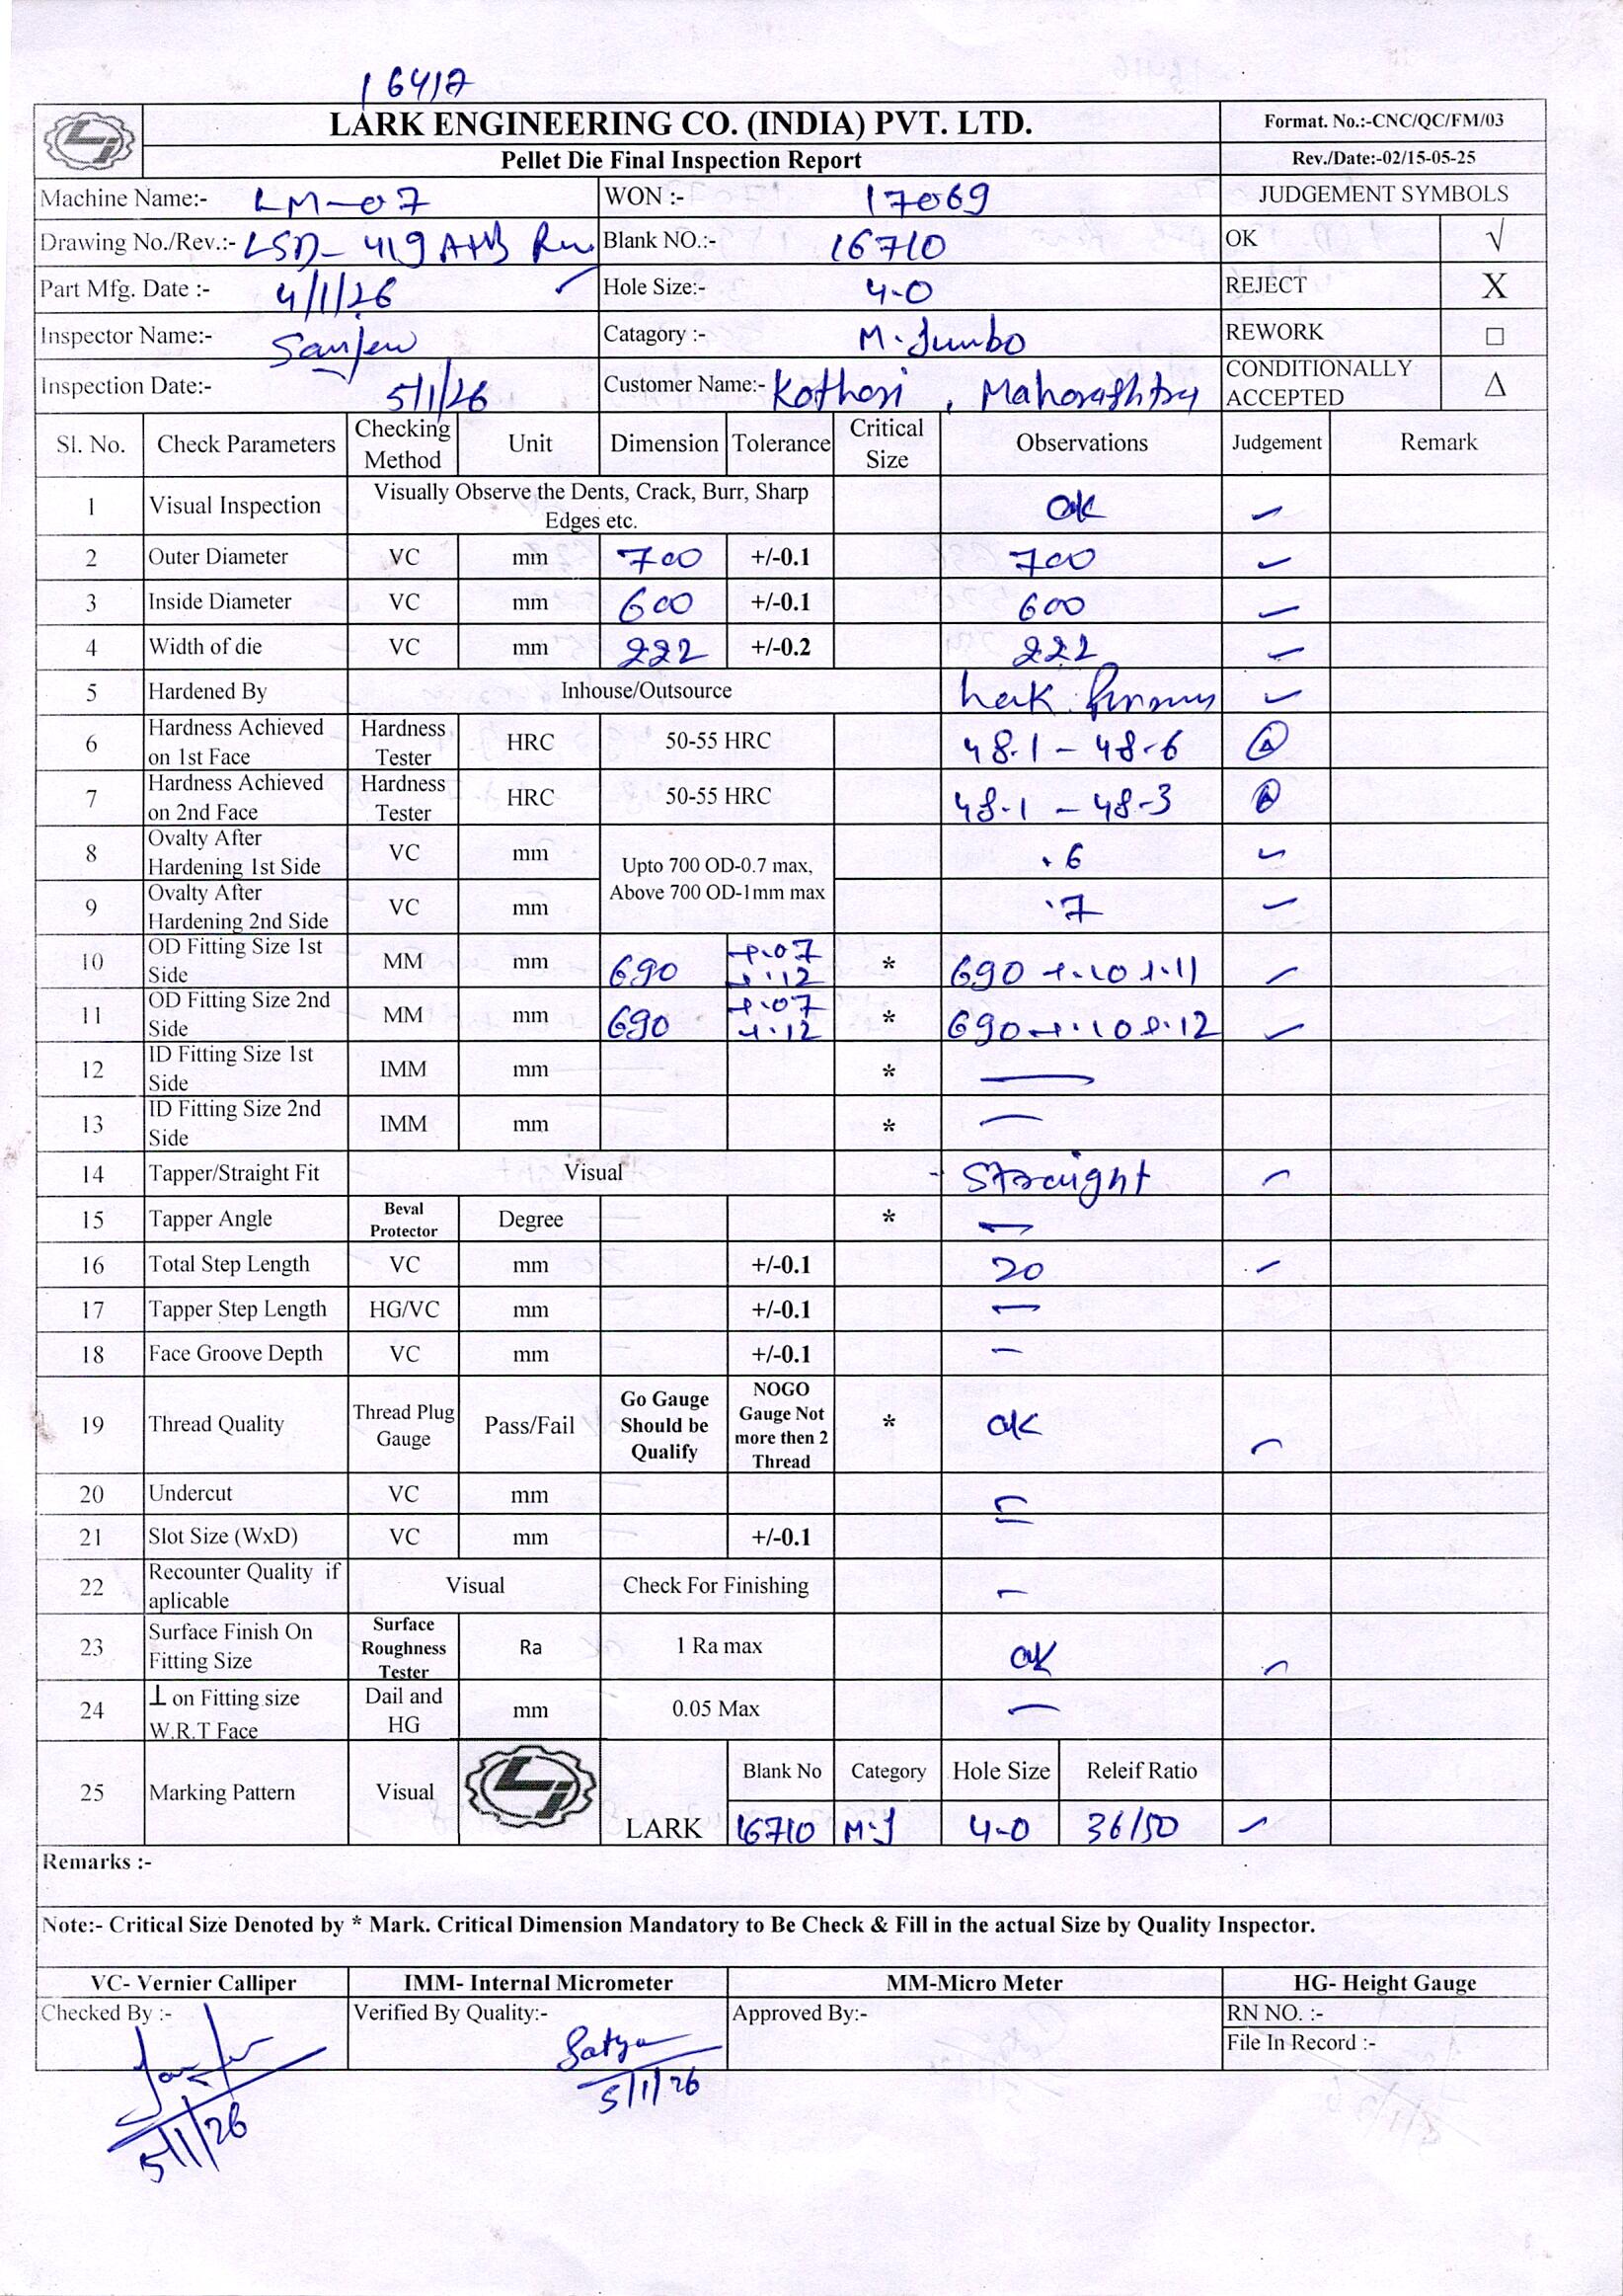 16417
LARK ENGINEERING CO. (INDIA) PVT. LTD.
Format. No.:-CNC/QC/FM/03
Pellet Die Final Inspection Report
Rev./Date:-02/15-05-25
Machine Name:- LM-07 WON :- 17069 JUDGEMENT SYMBOLS
Drawing No./Rev.:- LSD-419 Blank NO.:- 16710 OK √
Part Mfg. Date :- 4/1/26 Hole Size:- 4.0 REJECT X
Inspector Name:- Sanjeev Catagory :- M.Jumbo REWORK □
Inspection Date:- 5/1/26 Customer Name:- Kothari, Maharashtra CONDITIONALLY ACCEPTED Δ
Sl. No. Check Parameters Checking Method Unit Dimension Tolerance Critical Size Observations Judgement Remark
1 Visual Inspection Visually Observe the Dents, Crack, Burr, Sharp Edges etc. ok ✓
2 Outer Diameter VC mm 700 +/-0.1 700 ✓
3 Inside Diameter VC mm 600 +/-0.1 600 ✓
4 Width of die VC mm 222 +/-0.2 222 ✓
5 Hardened By Inhouse/Outsource ✓
6 Hardness Achieved on 1st Face Hardness Tester HRC 50-55 HRC 48.1 - 48.6
7 Hardness Achieved on 2nd Face Hardness Tester HRC 50-55 HRC 48.1 - 48.3
8 Ovalty After Hardening 1st Side VC mm Upto 700 OD-0.7 max, Above 700 OD-1mm max .6 ✓
9 Ovalty After Hardening 2nd Side VC mm .7 ✓
10 OD Fitting Size 1st Side MM mm 690 +.07 +.12 * 690 +.10 +.11 ✓
11 OD Fitting Size 2nd Side MM mm 690 +.07 +.12 * 690 +.10 +.12 ✓
12 ID Fitting Size 1st Side IMM mm * —
13 ID Fitting Size 2nd Side IMM mm * —
14 Tapper/Straight Fit Visual - Straight ✓
15 Tapper Angle Beval Protector Degree * —
16 Total Step Length VC mm +/-0.1 20 ✓
17 Tapper Step Length HG/VC mm +/-0.1 —
18 Face Groove Depth VC mm +/-0.1 —
19 Thread Quality Thread Plug Gauge Pass/Fail Go Gauge Should be Qualify NOGO Gauge Not more then 2 Thread * ok ✓
20 Undercut VC mm —
21 Slot Size (WxD) VC mm +/-0.1 —
22 Recounter Quality if aplicable Visual Check For Finishing —
23 Surface Finish On Fitting Size Surface Roughness Tester Ra 1 Ra max ok ✓
24 ⊥ on Fitting size W.R.T Face Dail and HG mm 0.05 Max —
25 Marking Pattern Visual LARK Blank No Category Hole Size Releif Ratio
16710 M.J 4.0 36/50 ✓
Remarks :-
Note:- Critical Size Denoted by * Mark. Critical Dimension Mandatory to Be Check & Fill in the actual Size by Quality Inspector.
VC- Vernier Calliper IMM- Internal Micrometer MM-Micro Meter HG- Height Gauge
Checked By :- Verified By Quality:- Satya Approved By:- RN NO. :-
File In Record :-
5/1/26 5/1/26